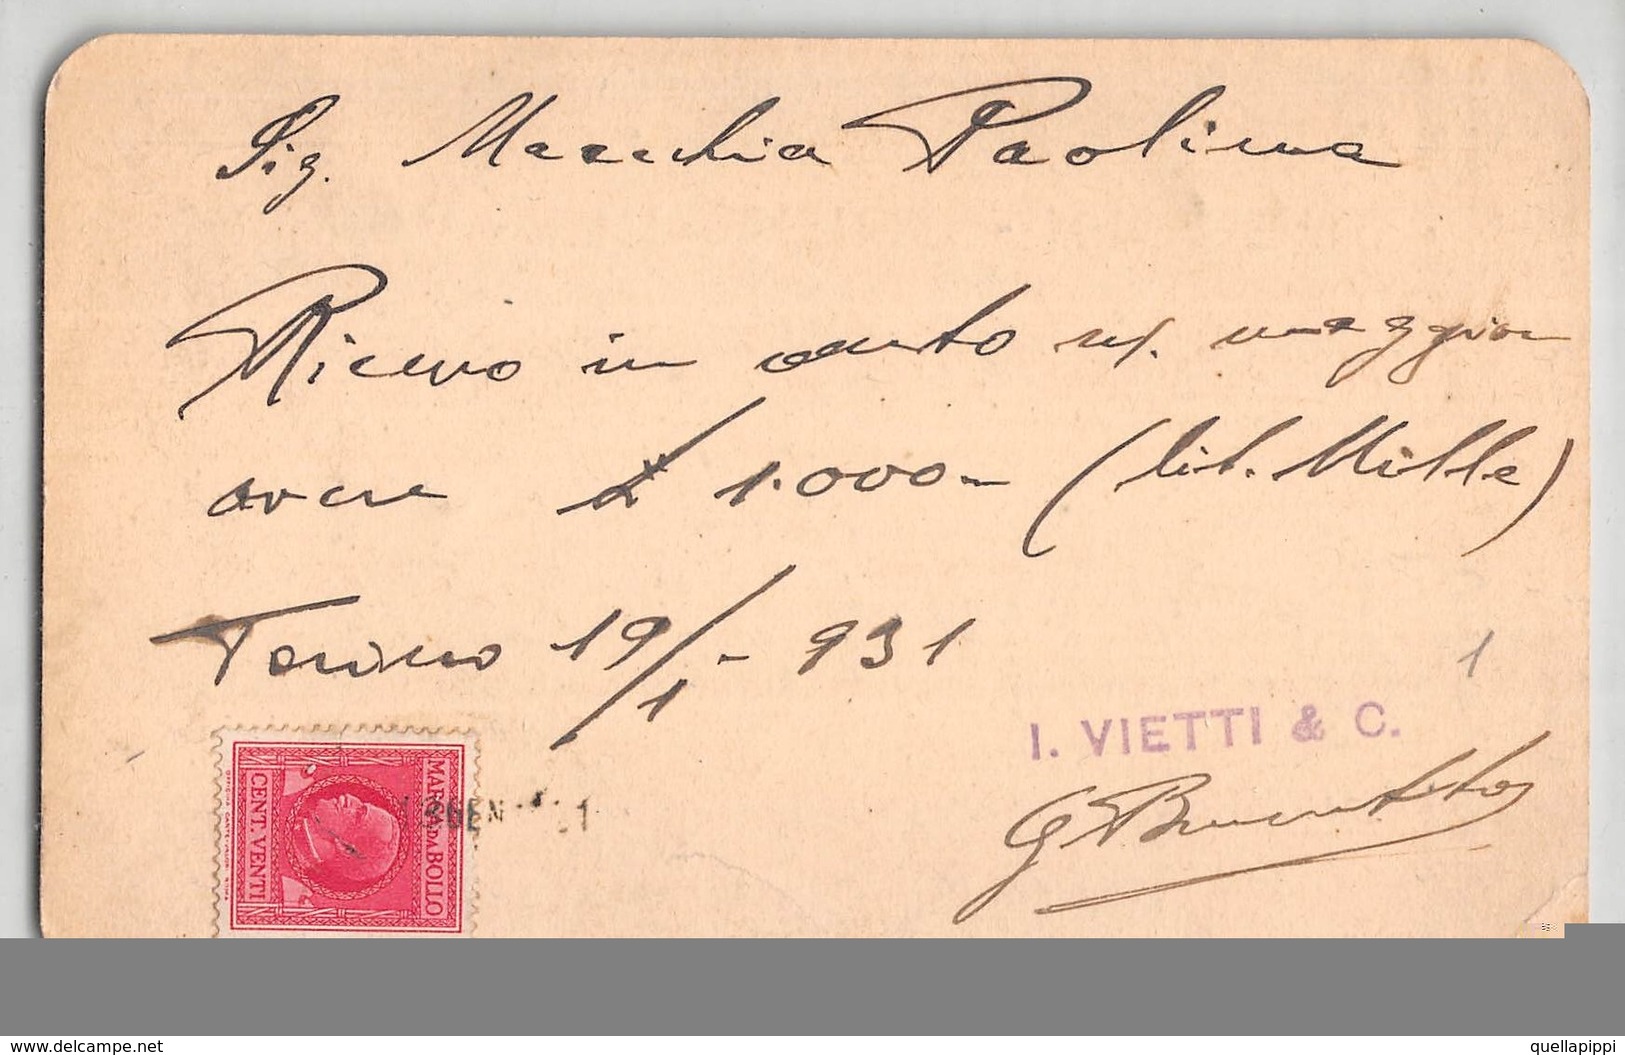 Sig. Macchia Paolina
Ricevo in conto ns/. maggior
avere £ 1.000- (Lit. Mille)
Torino 19/1 - 931
1
I. VIETTI & C.
MARCA DA BOLLO
CENT. VENTI
GEN
www.delcampe.net
quellapippi